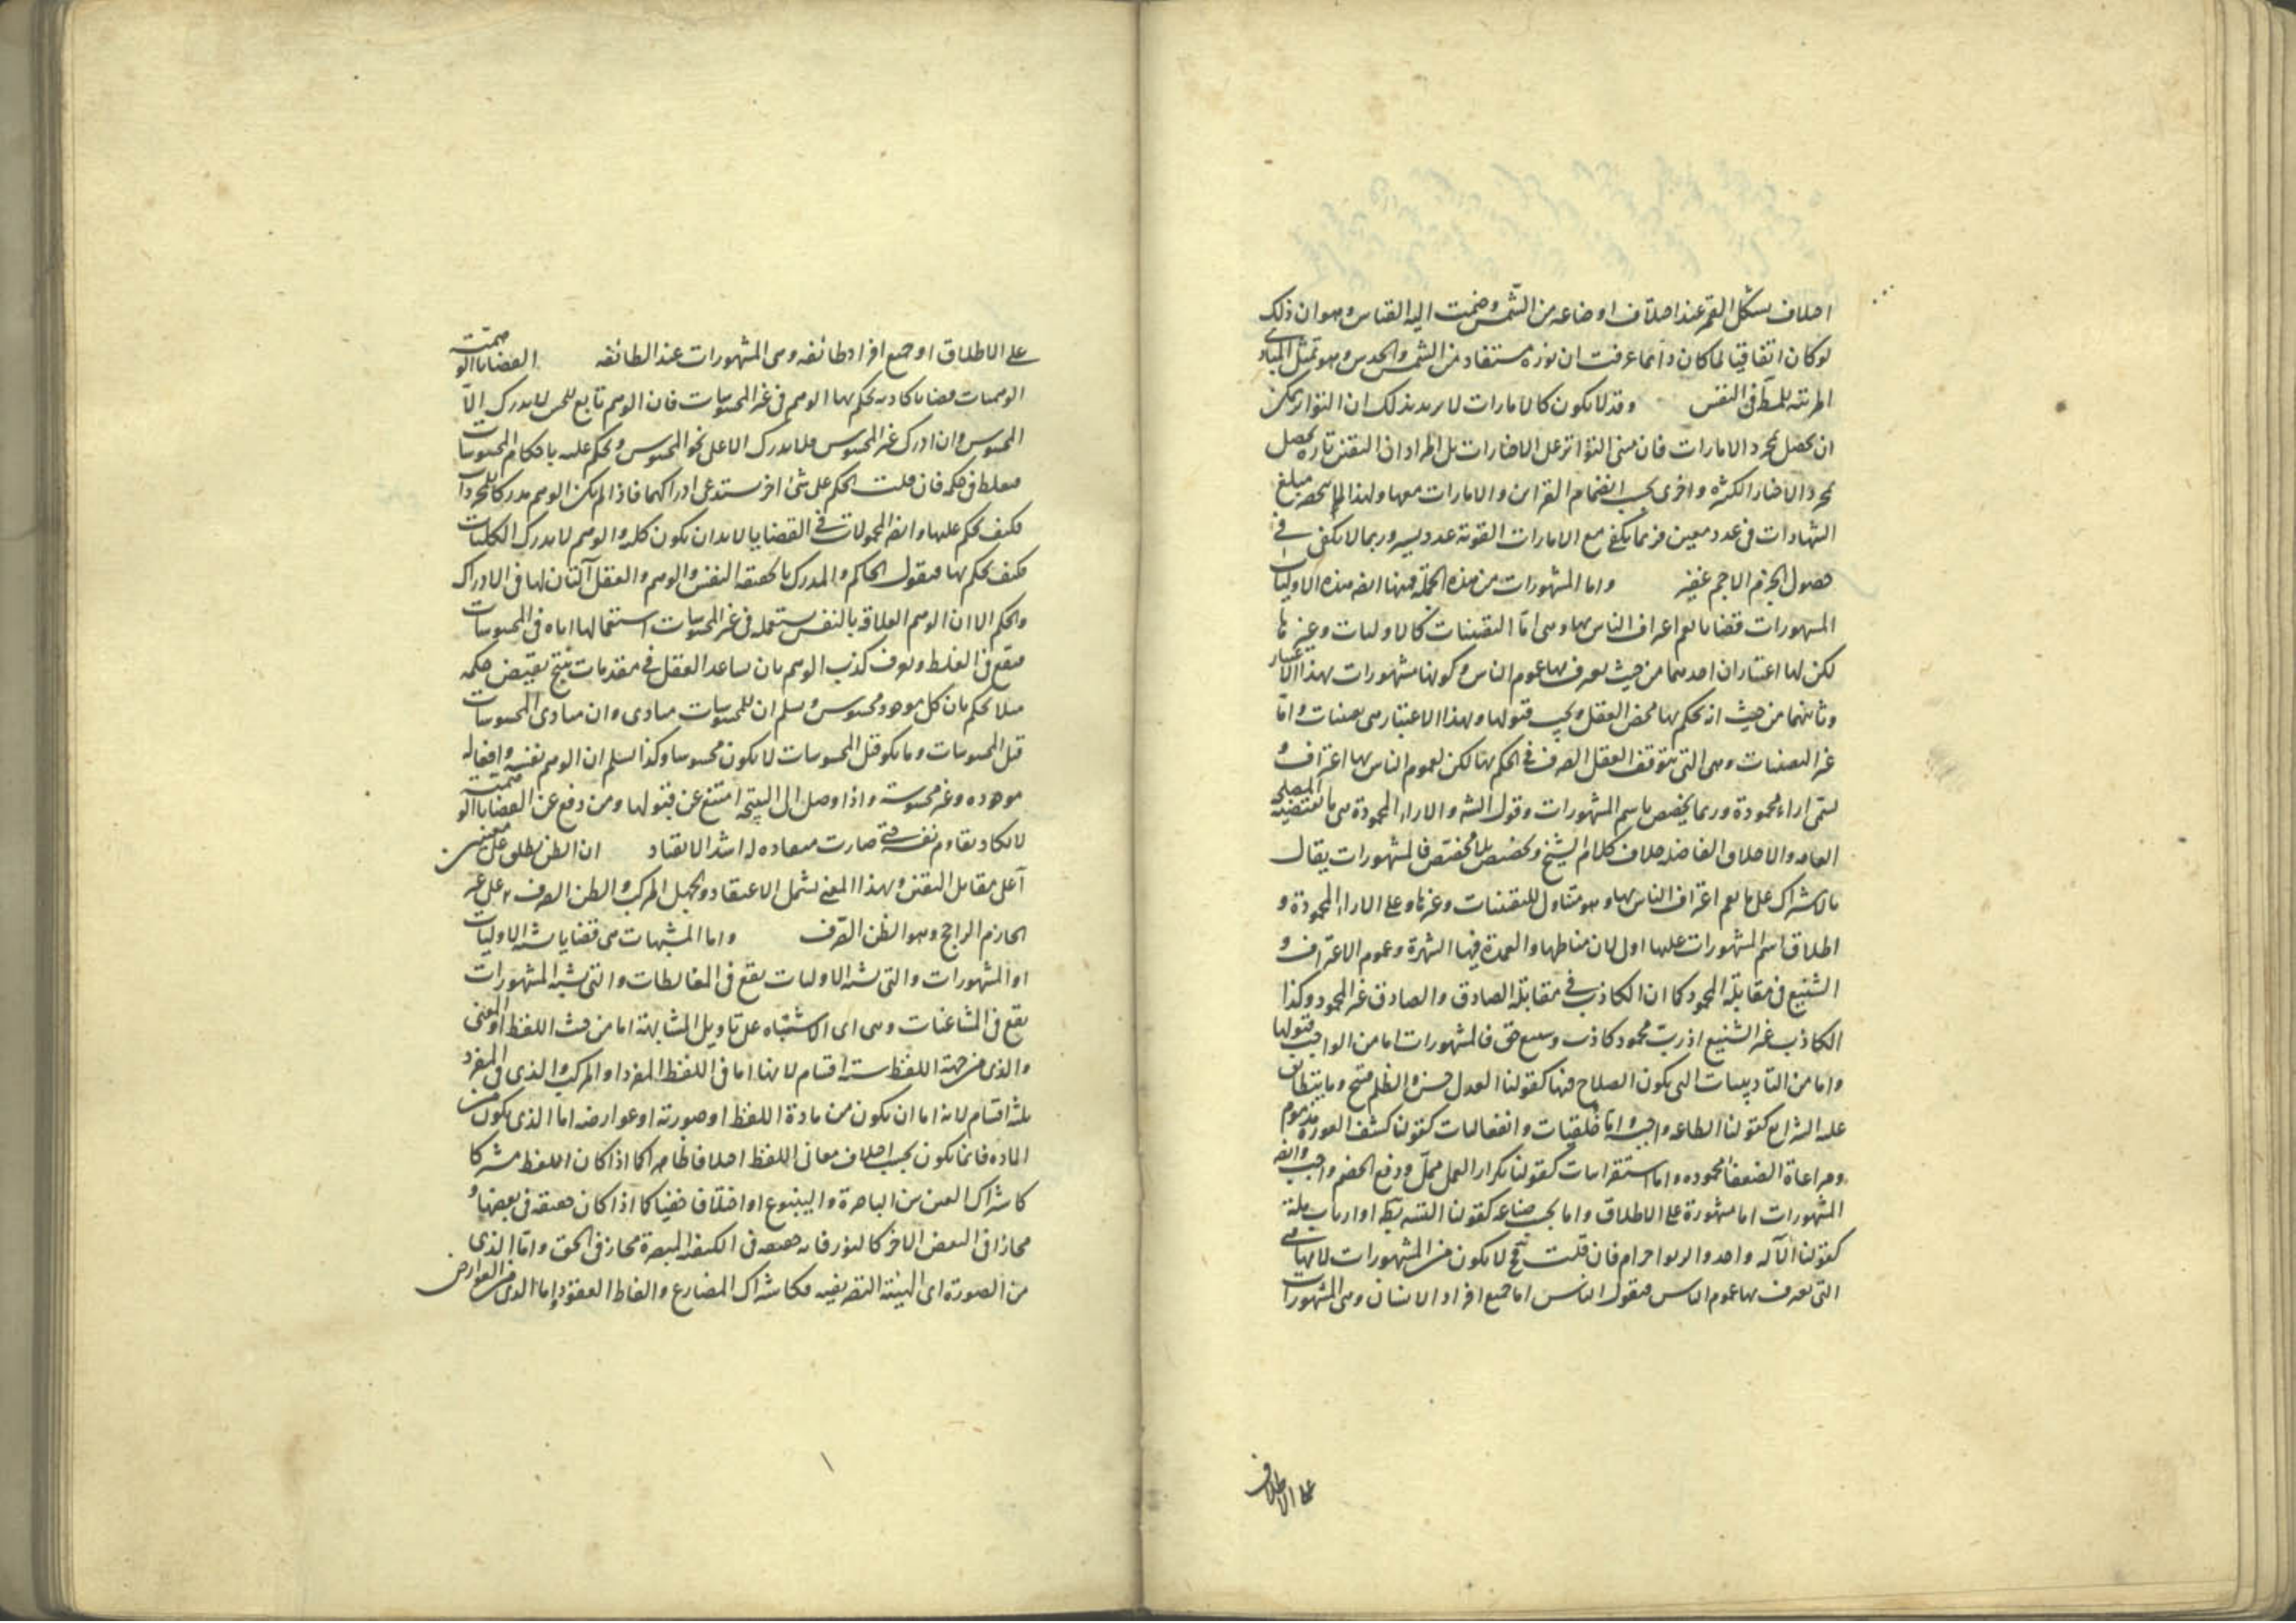 اختلاف تشكل القمر عند اختلاف اوضاعه من الشمس وضمت اليه القياس وهو ان ذلك
لو كان اتفاقيا لما كان دائما عرفت ان نوره مستفاد من الشمس والحدس وهو تمثل المبادى
المرتبة للمط فى النفس وقد لا يكون كالامارات لا يريد بذلك ان التواتر يمكن
ان يحصل بمجرد الامارات فان مبنى التواتر على الاخبارات بل المراد ان اليقين تارة يحصل
بمجرد الاخبار الكثيرة واخرى بحسب انضمام القراين والامارات معها ولهذا لم ينحصر مبلغ
الشهادات فى عدد معين فربما يكفى مع الامارات القوية عدد يسير وربما لا يكفى فى
حصول الجزم الا جم غفير واما المشهورات من هذه الجملة فمنها ايضه هذه الاوليات
المشهورات قضايا يعم اعتراف الناس بها وهى اما اليقينات كالاوليات وغيرها
لكن لها اعتباران احدهما من حيث يعترف بها عموم الناس وكونها مشهورات بهذا الاعتبار
وثانيهما من حيث انه يحكم بها محض العقل ويجب قبولها وبهذا الاعتبار هى يقينيات واما
غير اليقينيات وهى التى يتوقف العقل الصرف فى الحكم بها لكن لعموم الناس بها اعتراف و
تسمى اراء محمودة وربما يخصص باسم المشهورات وقول الشه والاراء المحمودة هى ما تقتضيه المصلحة
العامه والاخلاق الفاضله خلاف كلام الشيخ وتخصيص بلا مخصص فالمشهورات يقال
بالاشتراك على ما يعم اعتراف الناس بها وهو متناول لليقينيات وغيرها وعلى الاراء المحمودة و
اطلاق اسم المشهورات عليها اولى لان مناطها والعمدة فيها الشهرة وعموم الاعتراف و
الشنيع فى مقابلة المحمود كما ان الكاذب فى مقابلة الصادق والصادق غير المحمود وكذا
الكاذب غير الشنيع اذ رب محمود كاذب وشنيع حق فالمشهورات اما من الواجب قبولها
واما من التاديبيات التى يكون الصلاح فيها كقولنا العدل حسن والظلم قبيح وما يتطابق
عليه الشرايع كقولنا الطاعة واجبة واما خلقيات وانفعاليات كقولنا كشف العورة مذموم
ومراعاة الضعفا محموده واما استقرائيات كقولنا تكرار العمل ممل ودفع الخصم واجب وايضه
المشهورات اما مشهورة على الاطلاق واما بحسب صناعة كقولنا او ارباب ملة
كقولنا الاله واحد والربوا حرام فان قلت فح لا يكون من المشهورات لانها هى
التى يعترف بها عموم الناس فيقول الناس اما جميع افراد الانسان وهى المشهورات
على الاطلاق
على الاطلاق او جميع افراد طائفه وهى المشهورات عند الطائفه القضايا الوهمية
الوهميات قضايا كاذبه يحكم بها الوهم فى غير المحسوسات فان الوهم تابع للحس لا يدرك الا
المحسوس وان ادرك غير المحسوس فلا يدرك الا على نحو المحسوس ويحكم عليه باحكام المحسوسات
فيغلط فى حكمه فان قلت الحكم على شئ اخر يستدعى ادراكهما فاذا لم يكن الوهم مدركا للمجردات
فكيف يحكم عليها وايضه المحمولات فى القضايا لابد ان يكون كليه والوهم لا يدرك الكليات
فكيف يحكم بها فيقول الحاكم والمدرك بالحقيقة النفس والوهم والعقل آلتان لها فى الادراك
والحكم الا ان الوهم لعلاقه بالنفس يستعمله فى غير المحسوسات استعمالها اياه فى المحسوسات
فيقع فى الغلط ويعرف كذب الوهم بان يساعد العقل فى مقدمات ينتج نقيض حكمه
مثلا يحكم بان كل موجود محسوس ويسلم ان للمحسوسات مبادى وان مبادى المحسوسات
قبل المحسوسات وما يكون قبل المحسوسات لا يكون محسوسا وكذا يسلم ان الوهم نفسه وافعاله
موجوده وغير محسوسة واذا وصل الى النتيجة امتنع عن قبولها ومن دفع عن القضايا الوهمية
لا يكاد يقاوم نفسه حتى صارت منقاده له اشد الانقياد ان الظن يطلق على معنيين
آ على مقابل اليقين وبهذا المعنى يشمل الاعتقاد والجهل المركب والظن الصرف ٢ على غير
الجازم الراجح وهو الظن الصرف واما المشبهات هى قضايا يشبه الاوليات
او المشهورات والتى يشبه الاوليات يقع فى المغالطات والتى يشبه المشهورات
يقع فى المشاغبات وهى اى الاشتباه على تاويل المشابهة اما من حيث اللفظ او المعنى
والذى من جهة اللفظ ستة اقسام لانها اما فى اللفظ المفرد او المركب والذى فى المفرد
ثلثة اقسام لانه اما ان يكون من مادة اللفظ او صورته او عوارضه اما الذى يكون من
الماده فانما يكون بحسب اختلاف معانى اللفظ اختلافا ظاهرا كما اذا كان اللفظ مشتركا
كاشتراك العين بين الباصرة والينبوع او اختلافا خفيا كما اذا كان حقيقه فى بعضها و
مجازا فى البعض الاخر كالنور فانه حقيقه فى الكيفيه المبصرة مجاز فى الحق واما الذى
من الصورة اى الهيئة التصريفيه فكاشتراك المضارع والفاظ العقود واما الذى من العوارض